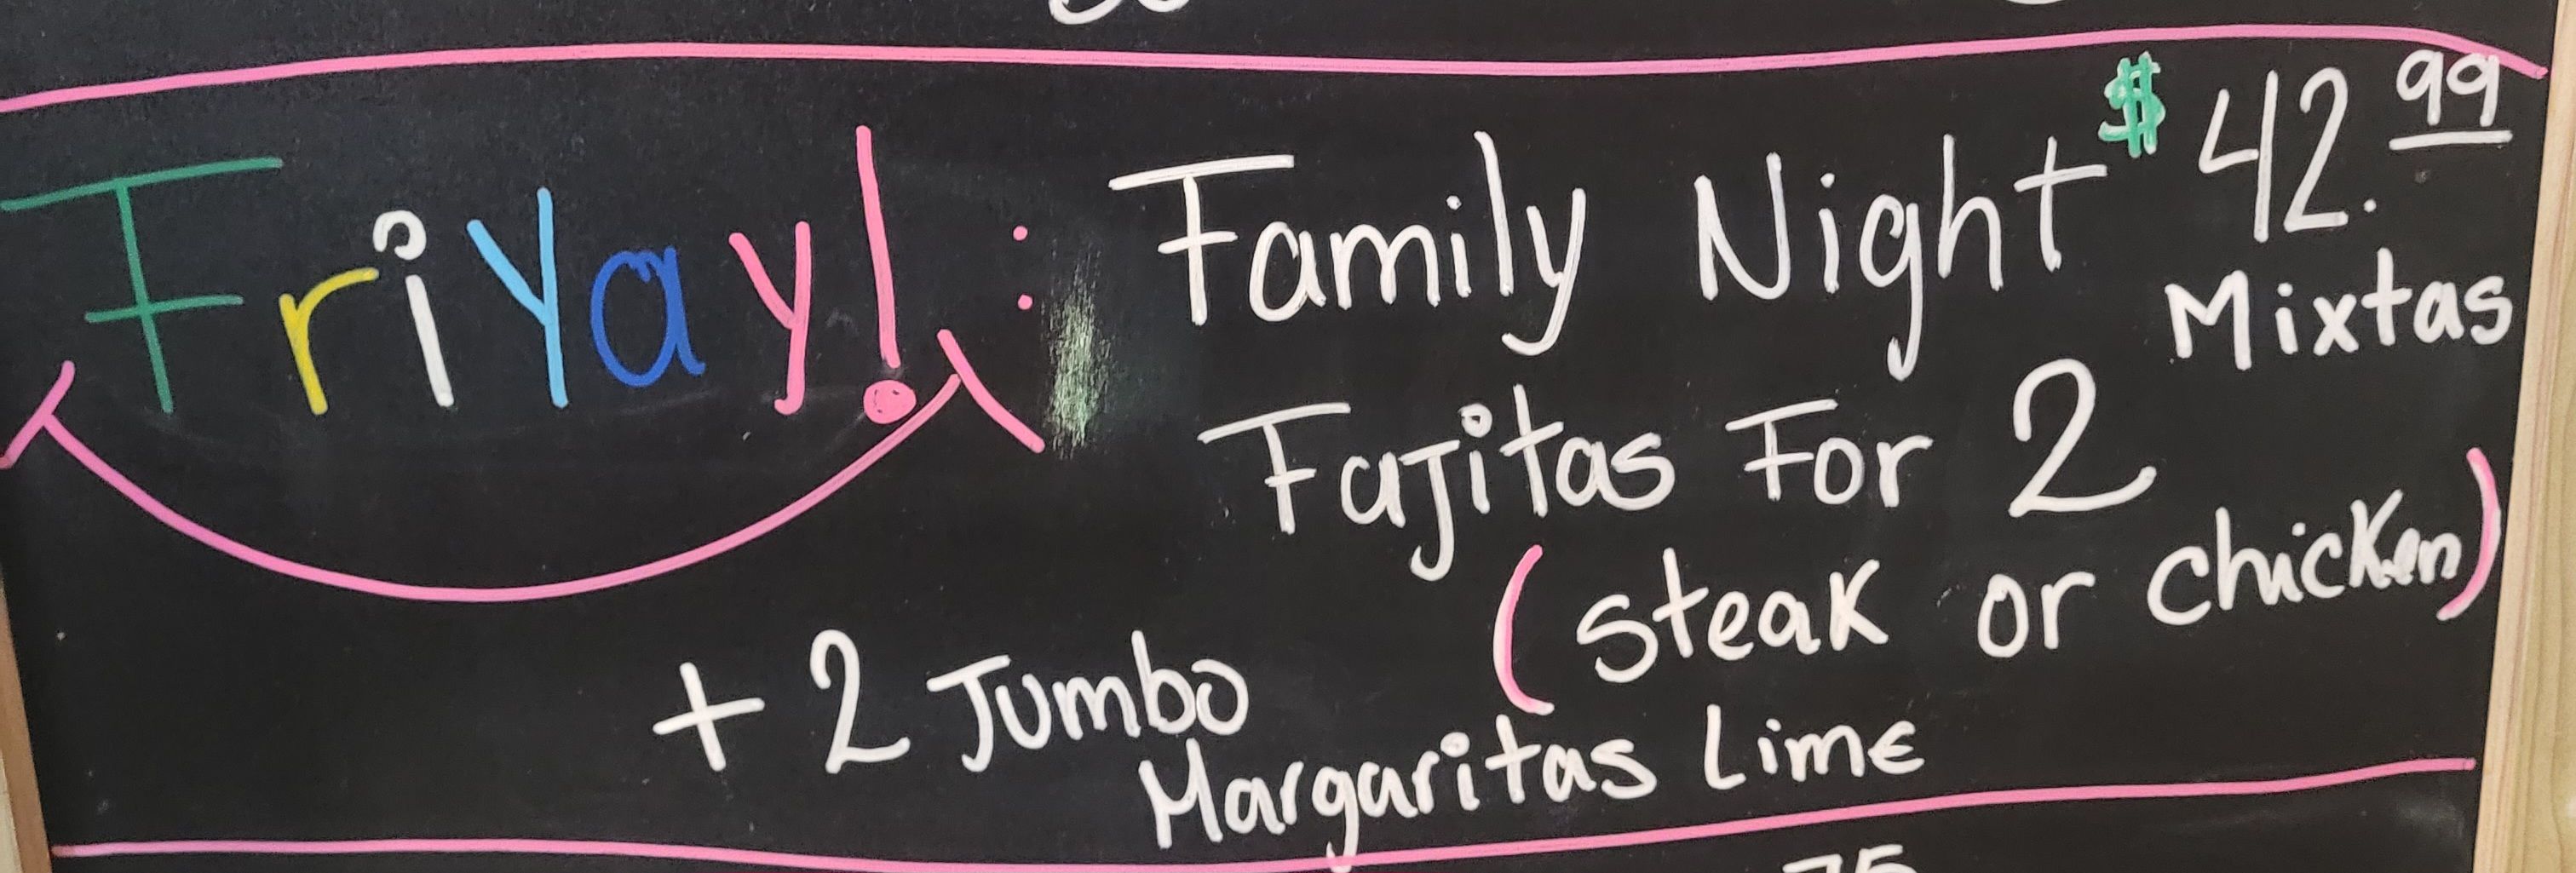 FriYay! : Family Night $42.99
Mixtas
Fajitas For 2
(steak or chicken)
+ 2 Jumbo
Margaritas Lime
75